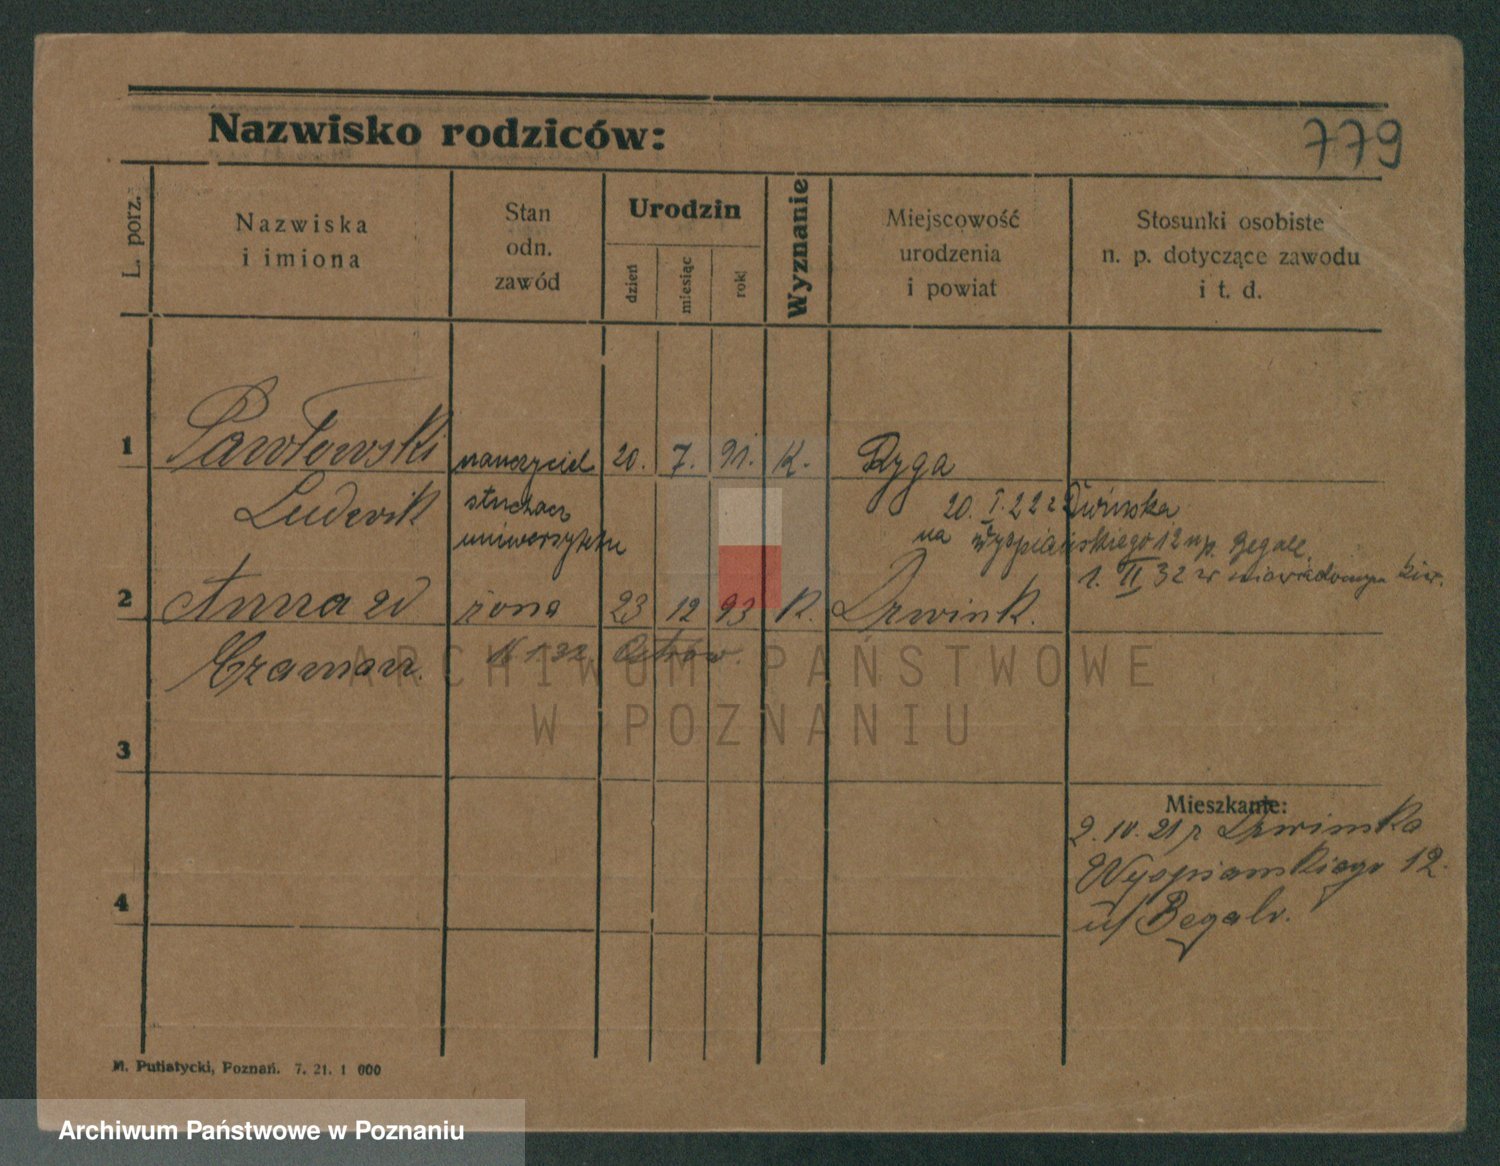 Nazwisko rodziców:
779
L. porz.
Nazwiska
i imiona
Stan
odn.
zawód
Urodzin
dzień
miesiąc
rok
Wyznanie
Miejscowość
urodzenia
i powiat
Stosunki osobiste
n. p. dotyczące zawodu
i t. d.
1
Pawłowski
nauczyciel
20.
7.
91.
K.
Ryga
Ludwik
słuchacz
uniwersytetu
20. I. 22 z Dwińska
na Wyspiańskiego 12 u p. Begale
1. II 32 w niewiadomym kier.
2
Anna
żona
23
12
93
K.
Dzwinsk.
Czaman.
1 32 Ostrów.
ARCHIWUM PAŃSTWOWE
W POZNANIU
3
Mieszkanie:
2. IV. 21 z Dzwinska
Wyspianskiego 12.
u/ Begale.
4
M. Putiatycki, Poznań. 7. 21. 1 000
Archiwum Państwowe w Poznaniu